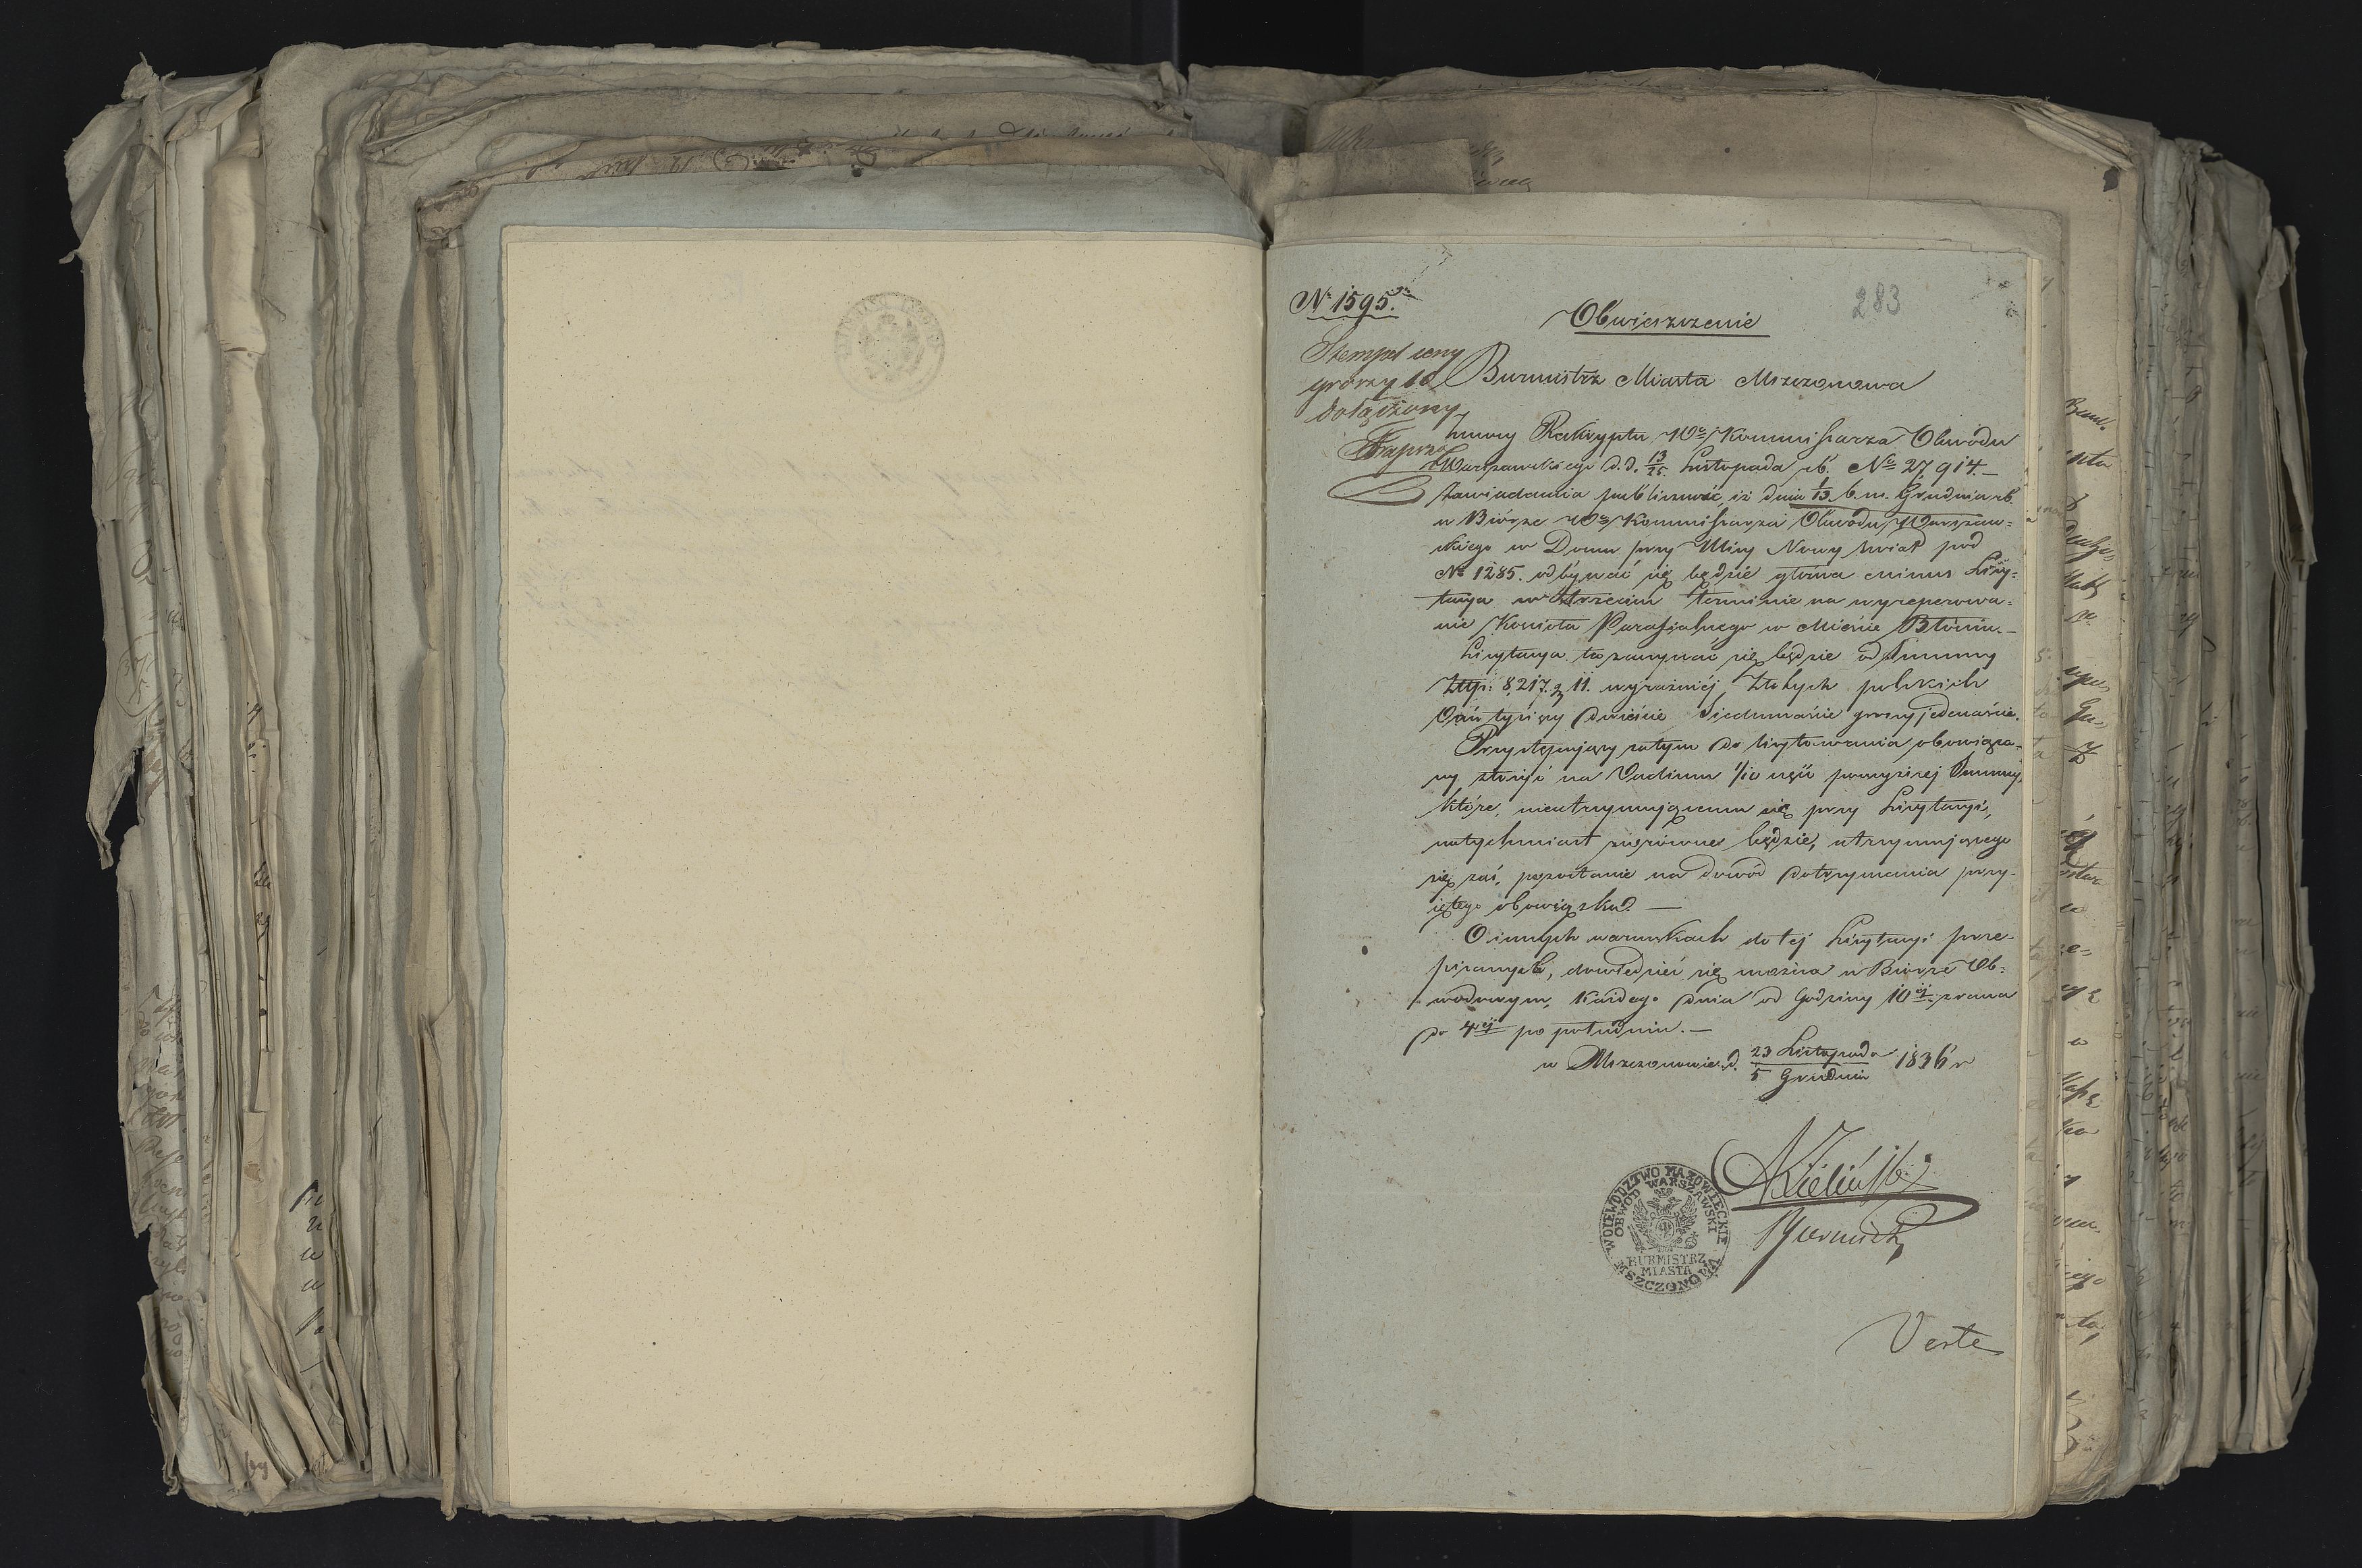 283
№ 1595.
Obwieszczenie
Stempel ceny
groszy 10
dołączony
Burmistrz Miasta Mszczonowa
mocy Reskryptu Wo Kommissarza Obwodu
Warszawskiego d.d. 13/25 Listopada rb. No 27914.
Zawiadamia publiczność, iż dnia 1/13 b.m. Grudnia rb.
w Biórze Wo Kommissarza Obwodu Warszaw=
skiego w Domu przy Ulicy Nowy Swiat pod
No 1285. odbywać się będzie głośna in minus Licy=
tacya w trzecim terminie na wyreperowa=
nie Kościoła Parafialnego w Mieście Błoniu.
Licytacya ta zaczynać się będzie od Summy
Złtp: 8,217. g 11. wyraźniéj Złotych polskich
Ośm tysięcy dwieście Siedmnaście groszy jedenaście.
Przystępujący zatym do licytowania obowiąza-
ny złożyć na Vadium 1/10 część powyższej Summy,
które, nieutrzymującemu się przy Licytacyi,
natychmiast zwrócone będzie, utrzymującego
się zaś, pozostanie na dowód dotrzymania przy-
iętego obowiązku.
O innych warunkach do tej Licytacyi prze-
pisanych, dowiedzieć się można w Biórze Ob=
wodowym, każdego dnia od Godziny 10ej zrana
do 4ej po południu.
w Mszczonowie d. 23 Listopada / 5 Grudnia 1836 r
Burmistrz
WOIEWÓDZTWO MAZOWIECKIE
OBWÓD WARSZAWSKI
BURMISTRZ
MIASTA
MSZCZONOWA
Verte